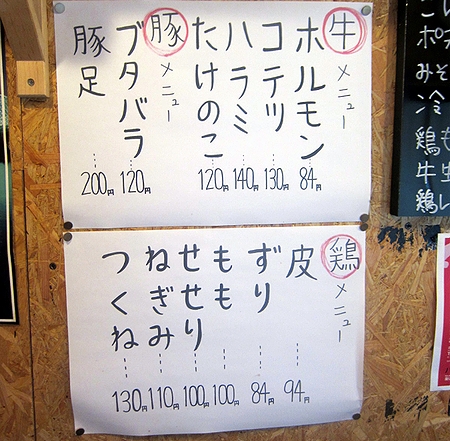 牛メニュー
ホルモン 84円
コテツ 130円
ハラミ 140円
たけのこ 120円
豚メニュー
ブタバラ 120円
豚足 200円
鶏メニュー
皮 94円
ずり 84円
もも 100円
せせり 100円
ねぎみ 110円
つくね 130円
ポテ
みそ
冷
鶏も
牛生
鶏レ